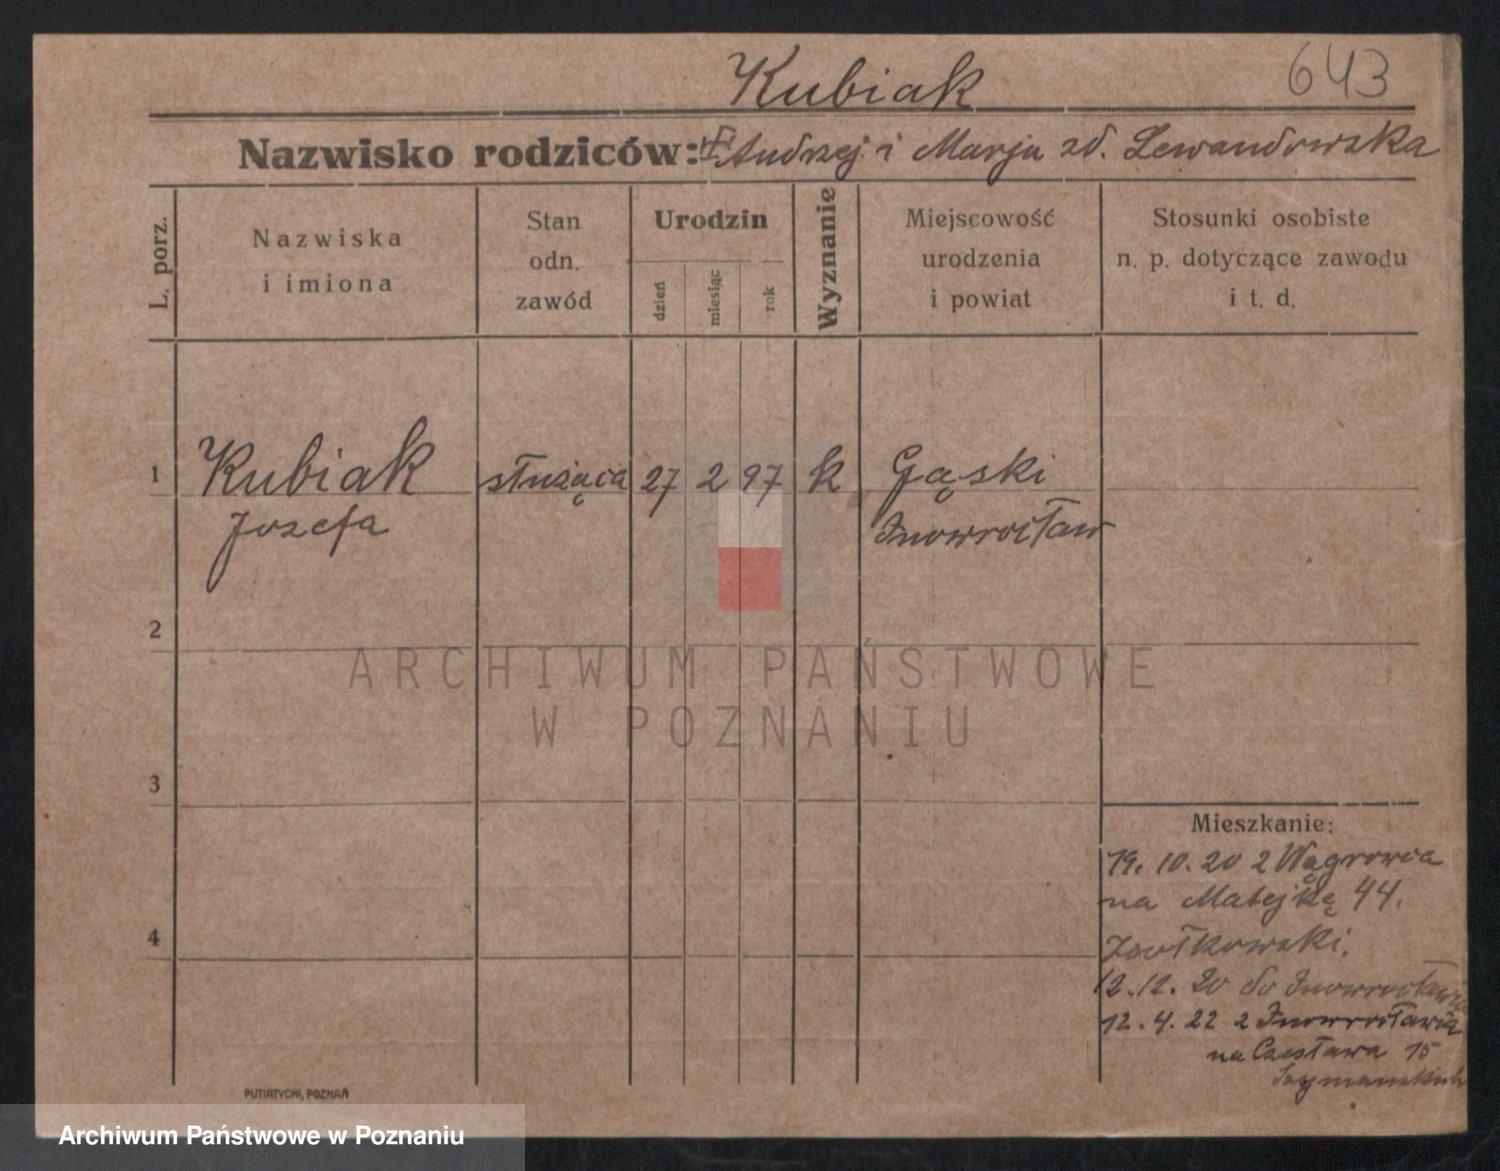 Kubiak 643
Nazwisko rodziców: Andrzej i Marja zd. Lewandowska
L. porz.
Nazwiska
i imiona
Stan
odn.
zawód
Urodzin
dzień
miesiąc
rok
Wyznanie
Miejscowość
urodzenia
i powiat
Stosunki osobiste
n. p. dotyczące zawodu
i t. d.
1 Kubiak służąca 27 2 97 k Gąski
Jozefa Inowrocław
2
ARCHIWUM PAŃSTWOWE
W POZNANIU
3
Mieszkanie:
19. 10. 20 z Wągrowca
na Matejkę 44.
4
12.12. 20 do Inowrocławia
12. 4. 22 z Inowrocławia
na Czesława 15
PUTIATYCKI, POZNAŃ
Archiwum Państwowe w Poznaniu